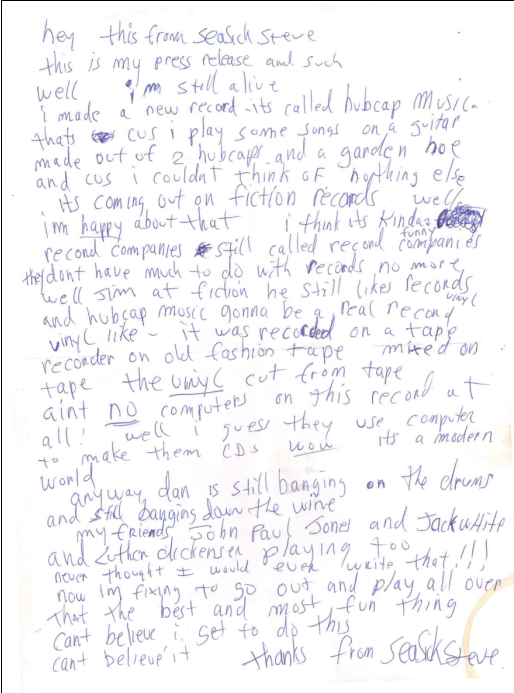 hey this from seasick steve
this is my press release and such
well i'm still alive
i made a new record its called hubcap music.
thats cus i play some songs on a guitar
made out of 2 hubcaps and a garden hoe
and cus i couldnt think of nothing else
its coming out on fiction records well
im happy about that i think its kinda
funny
record companies still called record companies
they dont have much to do with records no more
well Jim at fiction he still likes records
and hubcap music gonna be a real record
vinyl
vinyl like - it was recorded on a tape
recorder on old fashion tape mixed on
tape the vinyl cut from tape
aint no computers on this record at
all! well i guess they use computer
to make them CDs wow its a modern
world
anyway dan is still banging on the drums
and still banging down the wine
my friends John Paul Jones and Jack white
and Luther dickensen playing too
never thought I would ever write that!!!
now im fixing to go out and play all over
that the best and most fun thing
cant believe i get to do this
cant believe it thanks from seasick steve